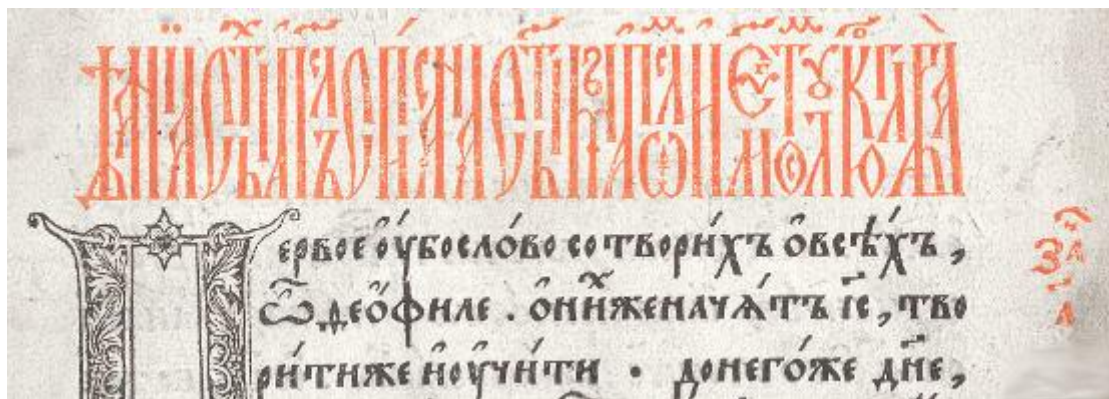 Дѣꙗнїѧ ст҃ыхъ ап҃лъ списана ст҃ымъ ап҃лѡмъ и єѵⷢ҇листомъ лꙋкою глава
Первое ѹ҆́бо сло́во сотвори́хъ о҆ всѣ́хъ ,
Ѽ, деѻ҆филе . о҆ ни́хже нача́тъ іс҃, тво
ри́ти же и҆ ѹ҆чи́ти · до него́же дн҃е,